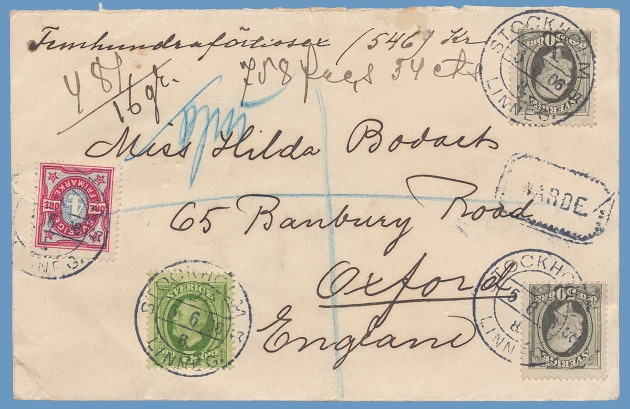 Femhundraförtiosex (546) Kr
48/16 gr. 758 frcs 54 cts
STOCKHOLM
LINNEG.
Miss Hilda Bodart
VARDE.
65 Banbury Road
SVERIGE
FRIMÄRKE
ETT ÖRE
1
LINNEG.
Oxford
England
STOCKHOLM
LINNEG.
50
SVERIGE
STOCKHOLM 8
6
8
LINNEG.
SVERIGE